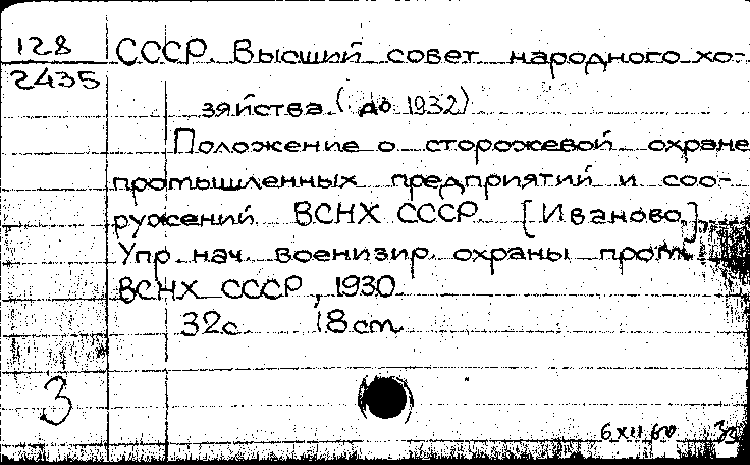 128
2435
СССР. Высший совет народного хо-
зяйства (до 1932)
Положение о сторожевой охране
промышленных предприятий и соо-
ружений ВСНХ СССР. [Иваново],
Упр. нач. военизир. охраны пром.
ВСНХ СССР, 1930.
32с. 18 cm.
3
6 XII 60